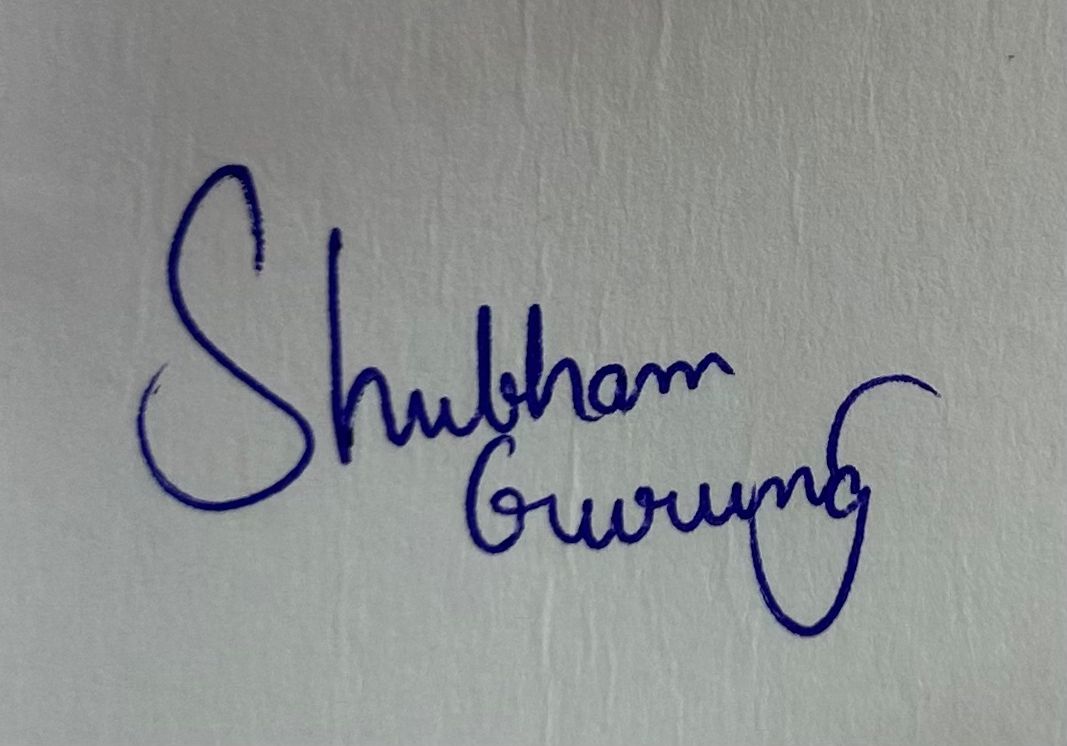 Shubham
Gurung